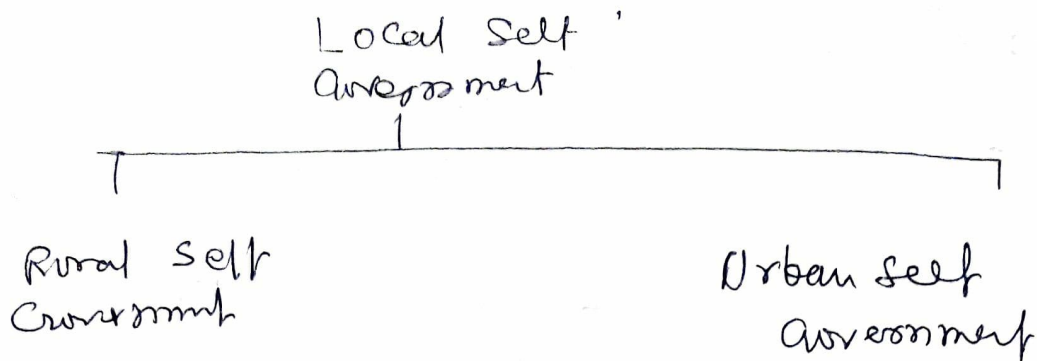 Local Self
Government
Rural Self
Government
Urban Self
Government